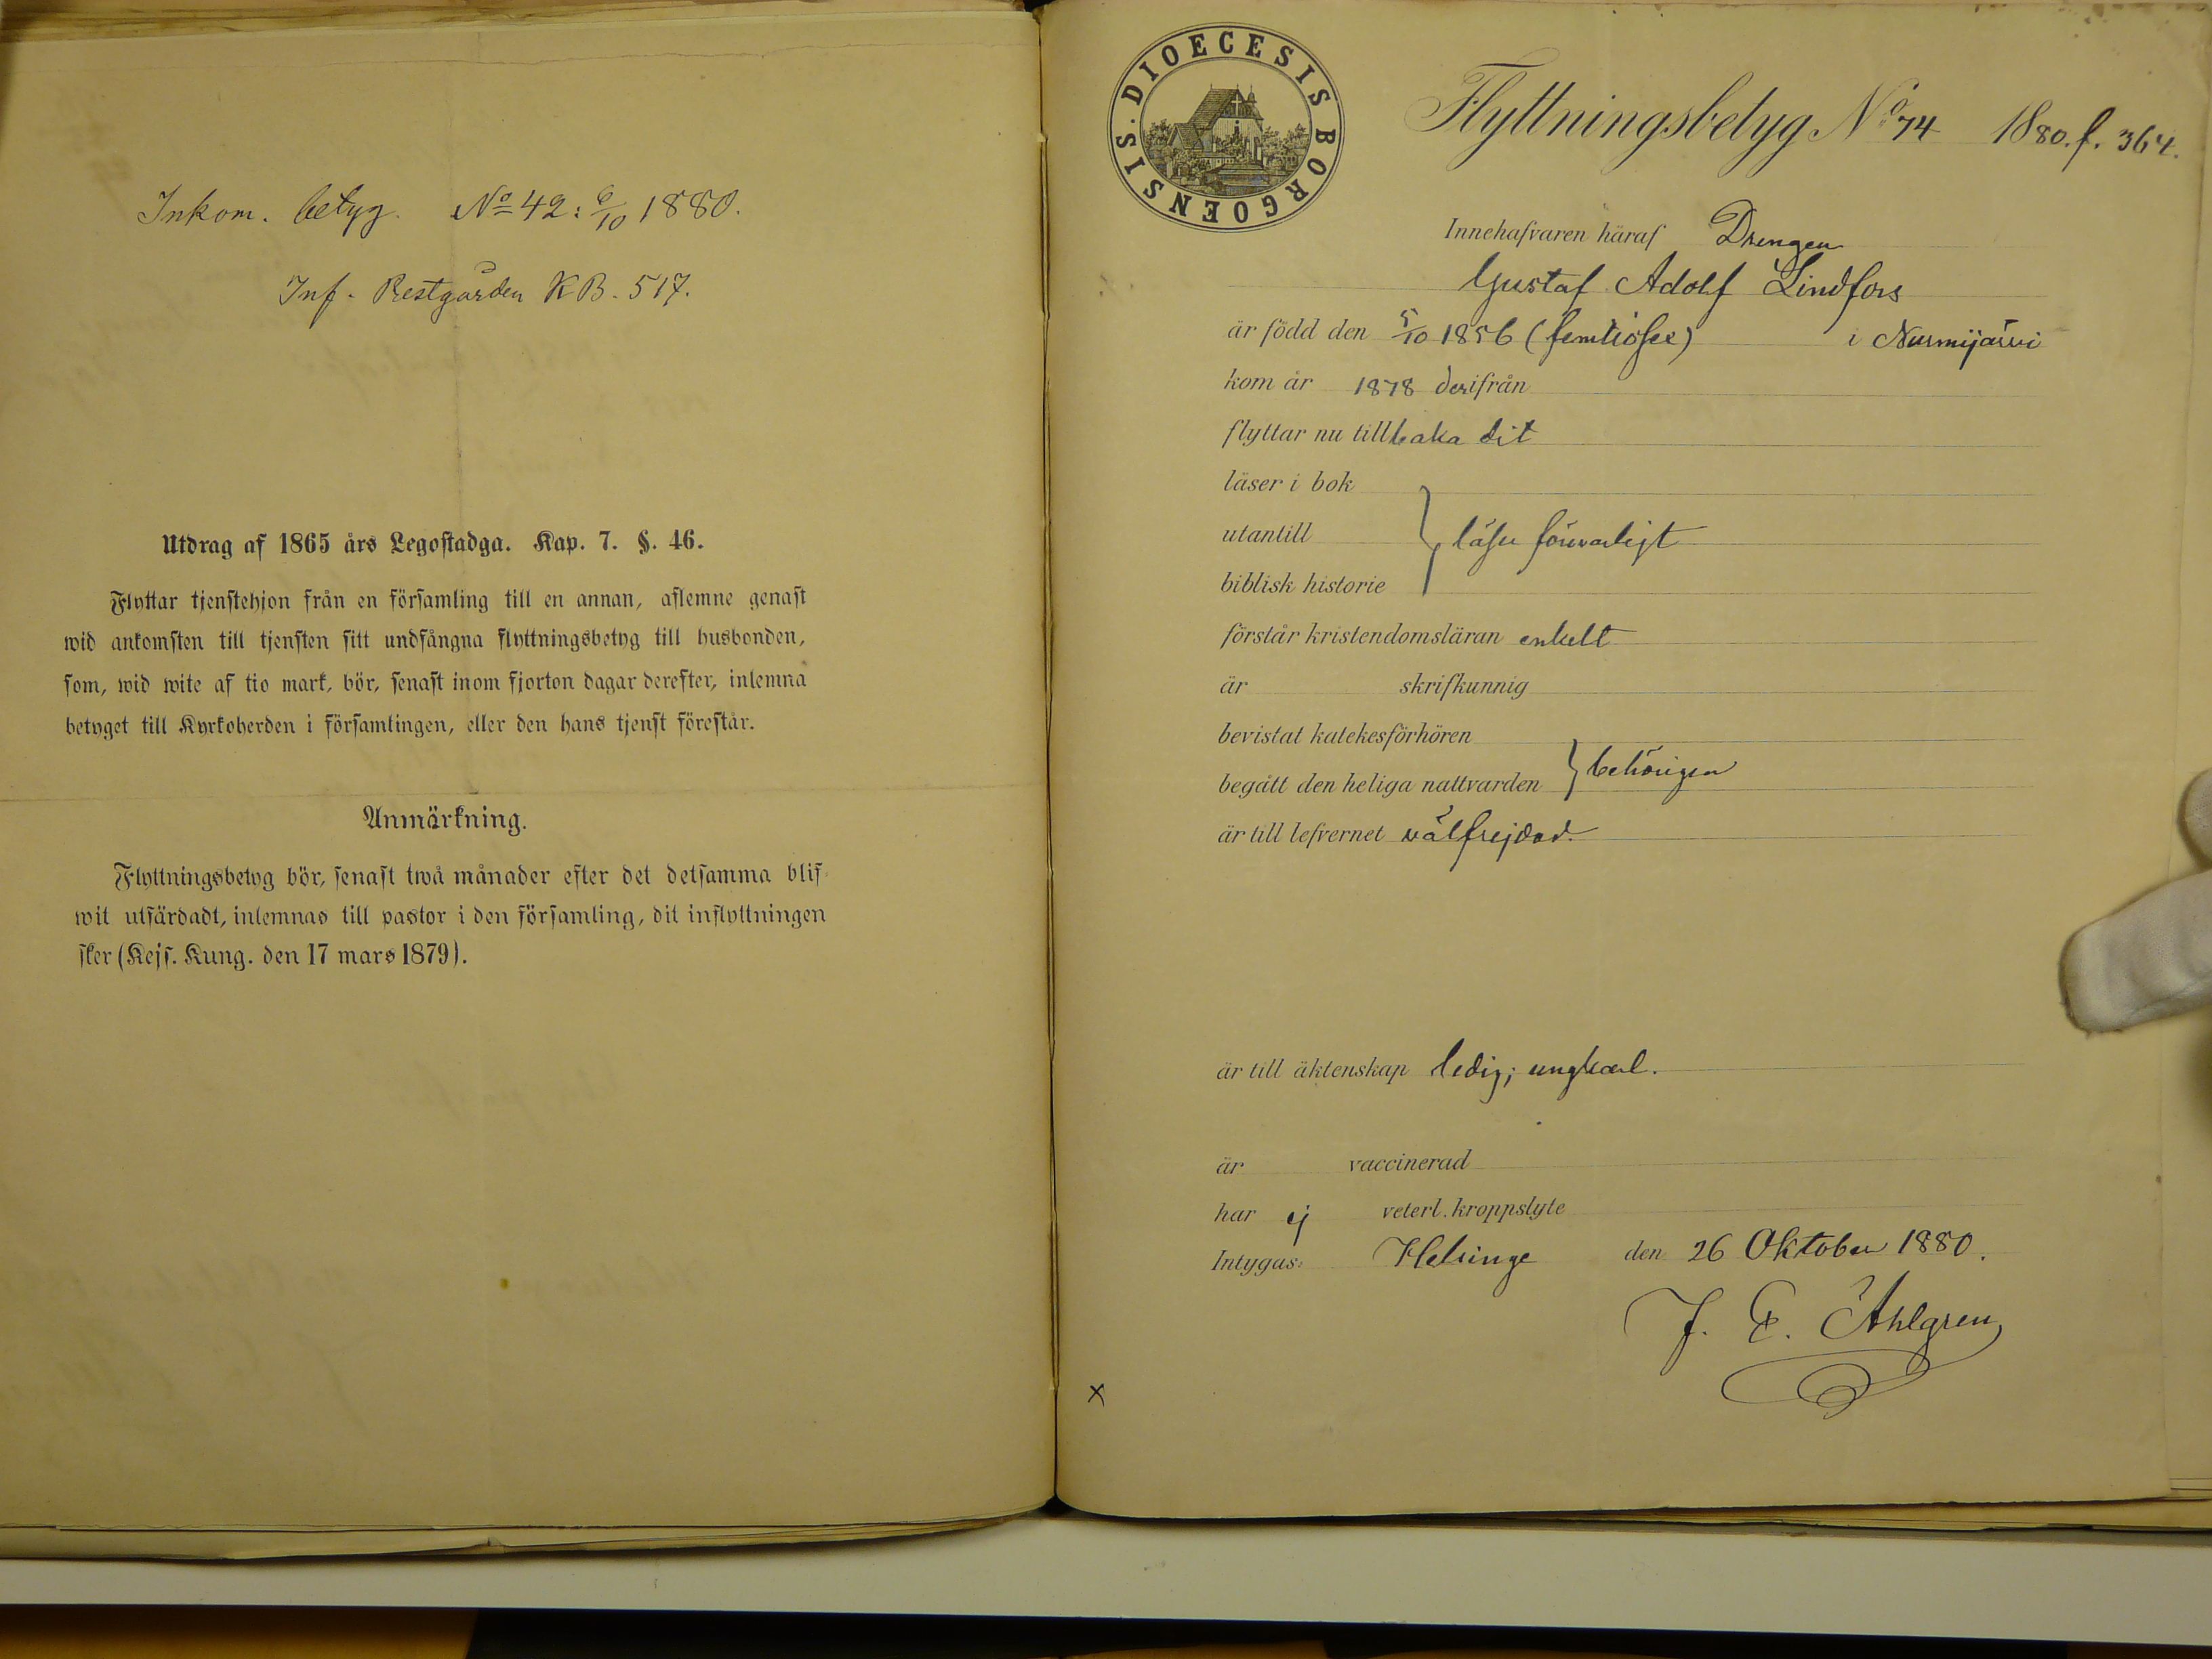 Inkom. betyg. No 42: 6/10 1880.
Inf. Restgården KB. 517.
Utdrag af 1865 års Legostadga. Kap. 7. §. 46.
Flyttar tjenstehjon från en församling till en annan, aflemne genast
wid ankomsten till tjensten sitt undfångna flyttningsbetyg till husbonden,
som, wid wite af tio mark, bör, senast inom fjorton dagar derefter, inlemna
betyget till Kyrkoherden i församlingen, eller den hans tjenst förestår.
Anmärkning.
Flyttningsbetyg bör, senast två månader efter det detsamma blif-
wit utfärdadt, inlemnas till pastor i den församling, dit inflyttningen
sker (Kejs. Kung. den 17 mars 1879).
DIOECESIS BORGOENSIS.
Flyttningsbetyg No 74 1880. f. 364.
Innehafvaren häraf Drengen
Gustaf Adolf Lindfors
är född den 5/10 1856 (femtiosex) i Nurmijärvi
kom år 1878 derifrån
flyttar nu tillbaka dit
läser i bok
utantill läser försvarligt
biblisk historie
förstår kristendomsläran enkelt
är skrifkunnig
bevistat katekesförhören
begått den heliga nattvarden behörigen
är till lefvernet välfrejdad.
är till äktenskap ledig; ungkarl.
är vaccinerad
har ej veterl. kroppslyte
Intygas: Helsinge den 26 Oktober 1880.
J. E. Ahlgren
x